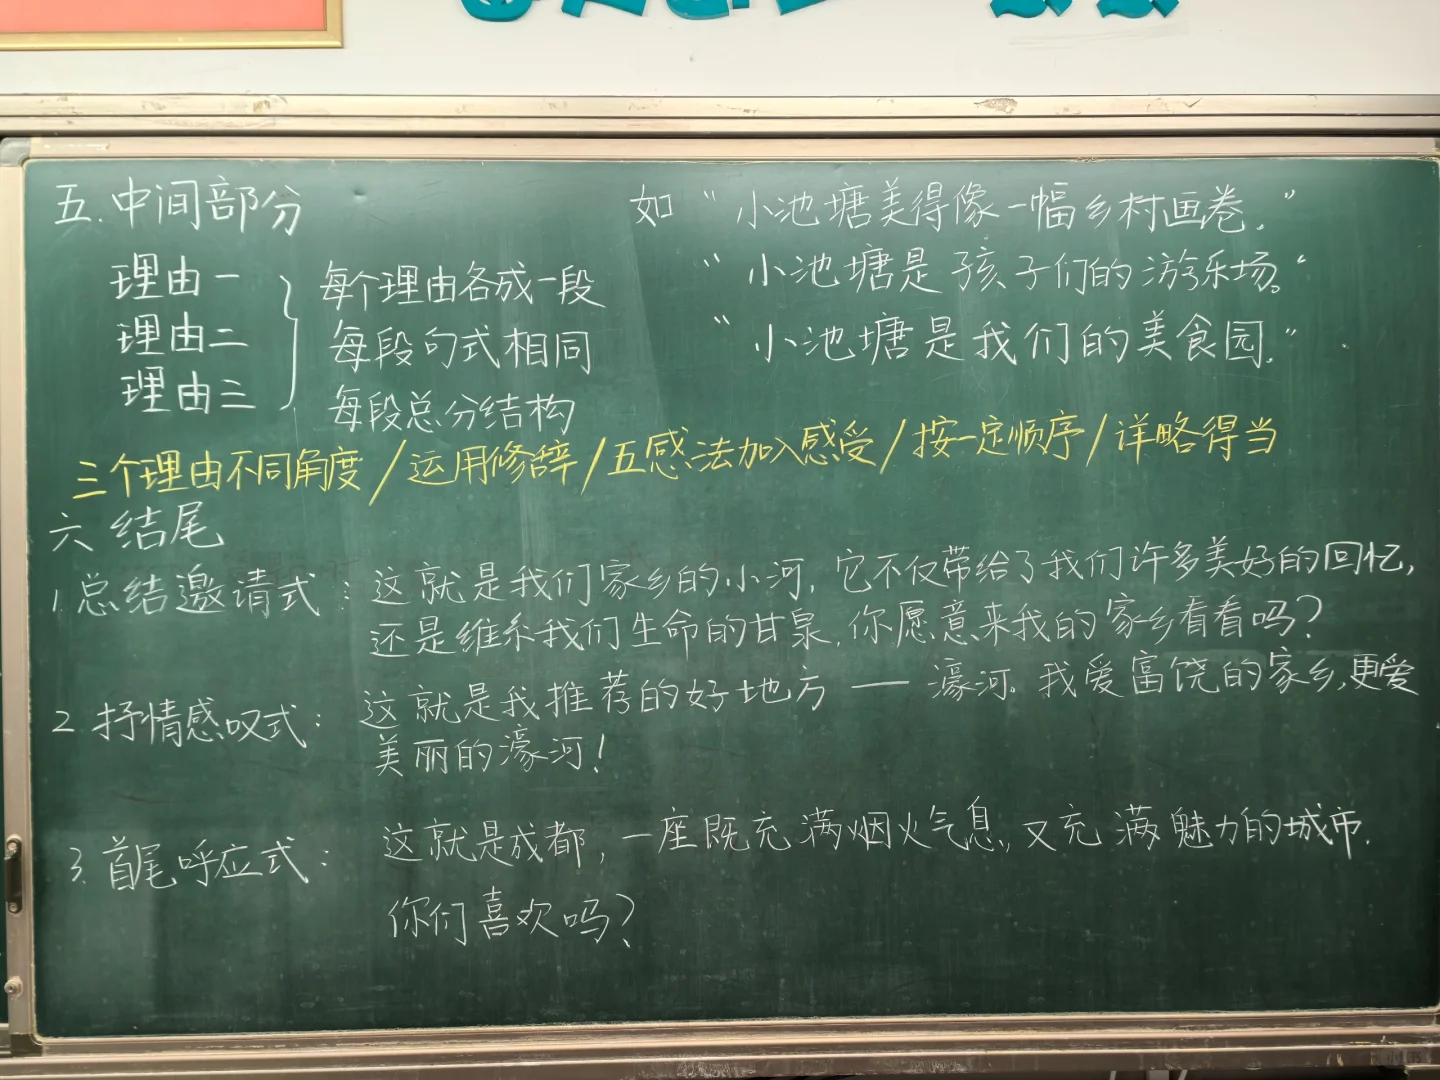 五.中间部分
理由一
理由二
理由三
每个理由各成一段
每段句式相同
每段总分结构
如“小池塘美得像一幅乡村画卷.”
“小池塘是孩子们的游乐场。“
“小池塘是我们的美食园.”
三个理由不同角度/运用修辞/五感法加入感受/按一定顺序/详略得当
六 结尾
1.总结邀请式：这就是我们家乡的小河,它不仅带给了我们许多美好的回忆,
还是维系我们生命的甘泉.你愿意来我的家乡看看吗?
2.抒情感叹式：这就是我推荐的好地方——濠河。我爱富饶的家乡,更爱
美丽的濠河!
3.首尾呼应式：这就是成都,一座既充满烟火气息,又充满魅力的城市.
你们喜欢吗?